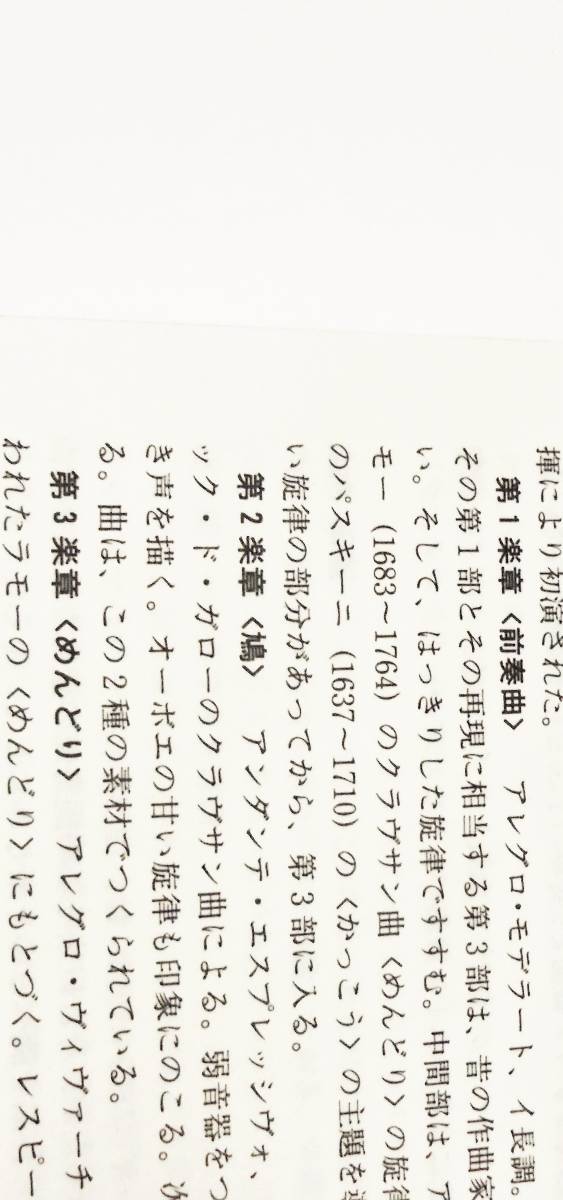 揮により初演された。
第1楽章〈前奏曲〉 アレグロ・モデラート、イ長調。
その第1部とその再現に相当する第3部は、昔の作曲家
い。そして、はっきりした旋律ですすむ。中間部は、ア
モー（1683〜1764）のクラヴサン曲〈めんどり〉の旋律
のパスキーニ（1637〜1710）の〈かっこう〉の主題を
い旋律の部分があってから、第3部に入る。
第2楽章〈鳩〉 アンダンテ・エスプレッシヴォ、
ック・ド・ガローのクラヴサン曲による。弱音器をつ
き声を描く。オーボエの甘い旋律も印象にのこる。次
る。曲は、この2種の素材でつくられている。
第3楽章〈めんどり〉 アレグロ・ヴィヴァーチ
われたラモーの〈めんどり〉にもとづく。レスピー